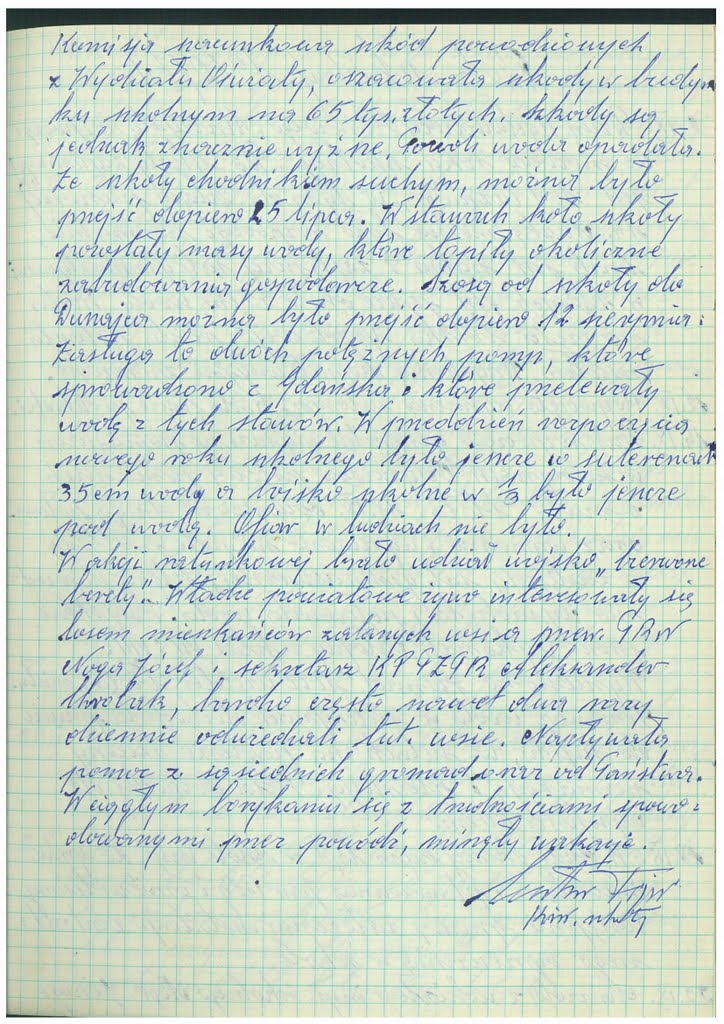 Komisja szacunkowa szkód powodziowych
z Wydziału Oświaty, oszacowała szkody w budyn
ku szkolnym na 65 tys. złotych. Szkody są
jednak znacznie wyższe. Powoli woda opadała.
Ze szkoły chodnikiem suchym, można było
przejść dopiero 25 lipca. W stawach koło szkoły
pozostały masy wody, które topiły okoliczne
zabudowania gospodarcze. Szosą od szkoły do
Dunajca można było przejść dopiero 12 sierpnia.
Zasługa to dwóch potężnych pomp, które
sprowadzono z Gdańska i które przelewały
wodę z tych stawów. W przeddzień rozpoczęcia
nowego roku szkolnego było jeszcze w suterenach
35 cm wody a boisko szkolne w 1/3 było jeszcze
pod wodą. Ofiar w ludziach nie było.
W akcji ratunkowej brało udział wojsko „czerwone
berety". Władze powiatowe żywo interesowały się
losem mieszkańców zalanych wsi a przew. PRN
Noga Józef i sekretarz KP PZPR Aleksander
bardzo często nawet dwa razy
dziennie odwiedzali tut. wsie. Napływała
pomoc z sąsiednich gromad oraz od Państwa.
W ciągłym borykaniu się z trudnościami spowo-
dowanymi przez powódź, minęły wakacje.
Kier. szkoły